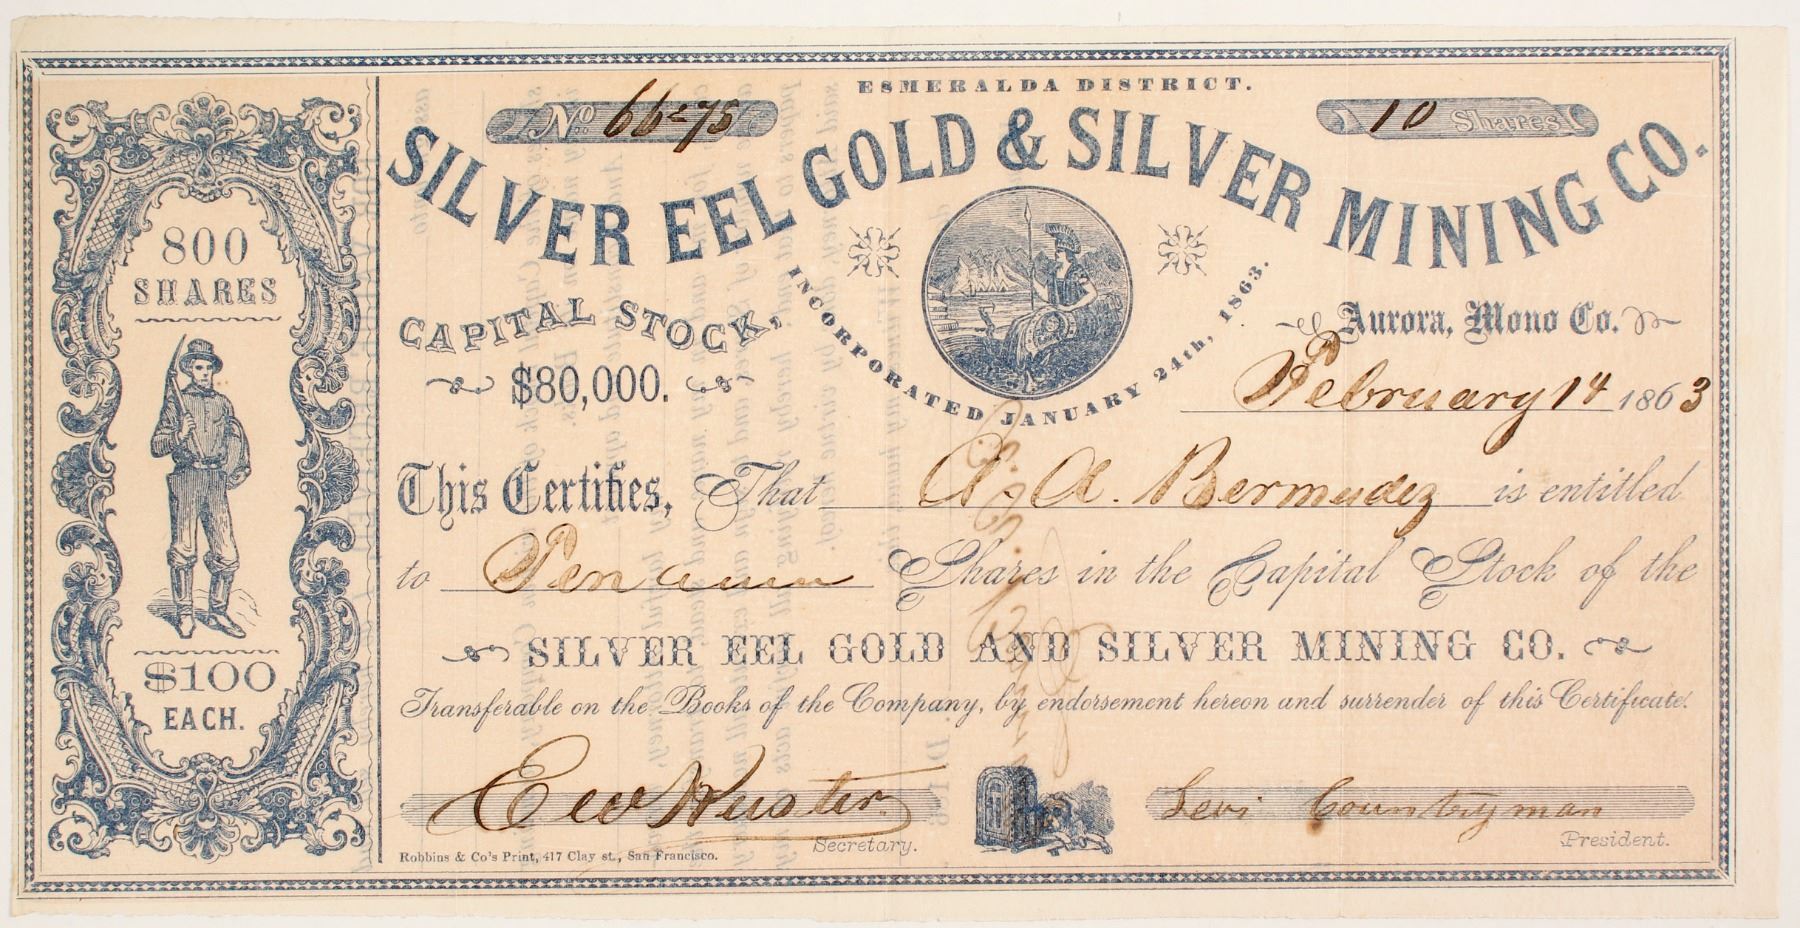 ESMERALDA DISTRICT.
No. 66-75
10 Shares
SILVER EEL GOLD & SILVER MINING CO.
INCORPORATED JANUARY 24th, 1863.
800
SHARES
$100
EACH.
CAPITAL STOCK,
$80,000.
Aurora, Mono Co.
February 14 1863
This Certifies, That A. A. Bermudez is entitled
to Ten Shares in the Capital Stock of the
SILVER EEL GOLD AND SILVER MINING CO.
Transferable on the Books of the Company, by endorsement hereon and surrender of this Certificate.
Secretary.
Levi Countryman
President.
Robbins & Co's Print, 417 Clay st., San Francisco.